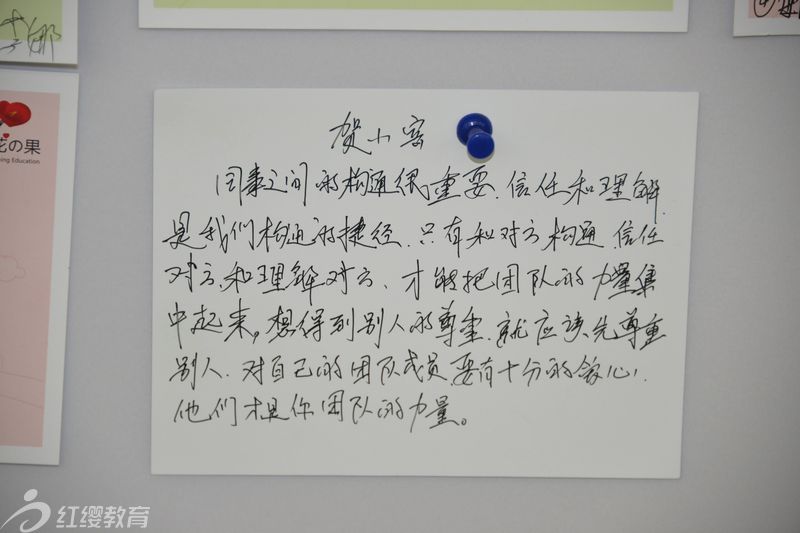 娜
花の果
ing Education
贺小容
同事之间的构通很重要.信任和理解
是我们构通的捷径.只有和对方构通.信任
对方.和理解对方.才能把团队的力量集
中起来,想得到别人的尊重.就应该先尊重
别人.对自己的团队成员要有十分的
他们才是你团队的力量。
红缨教育